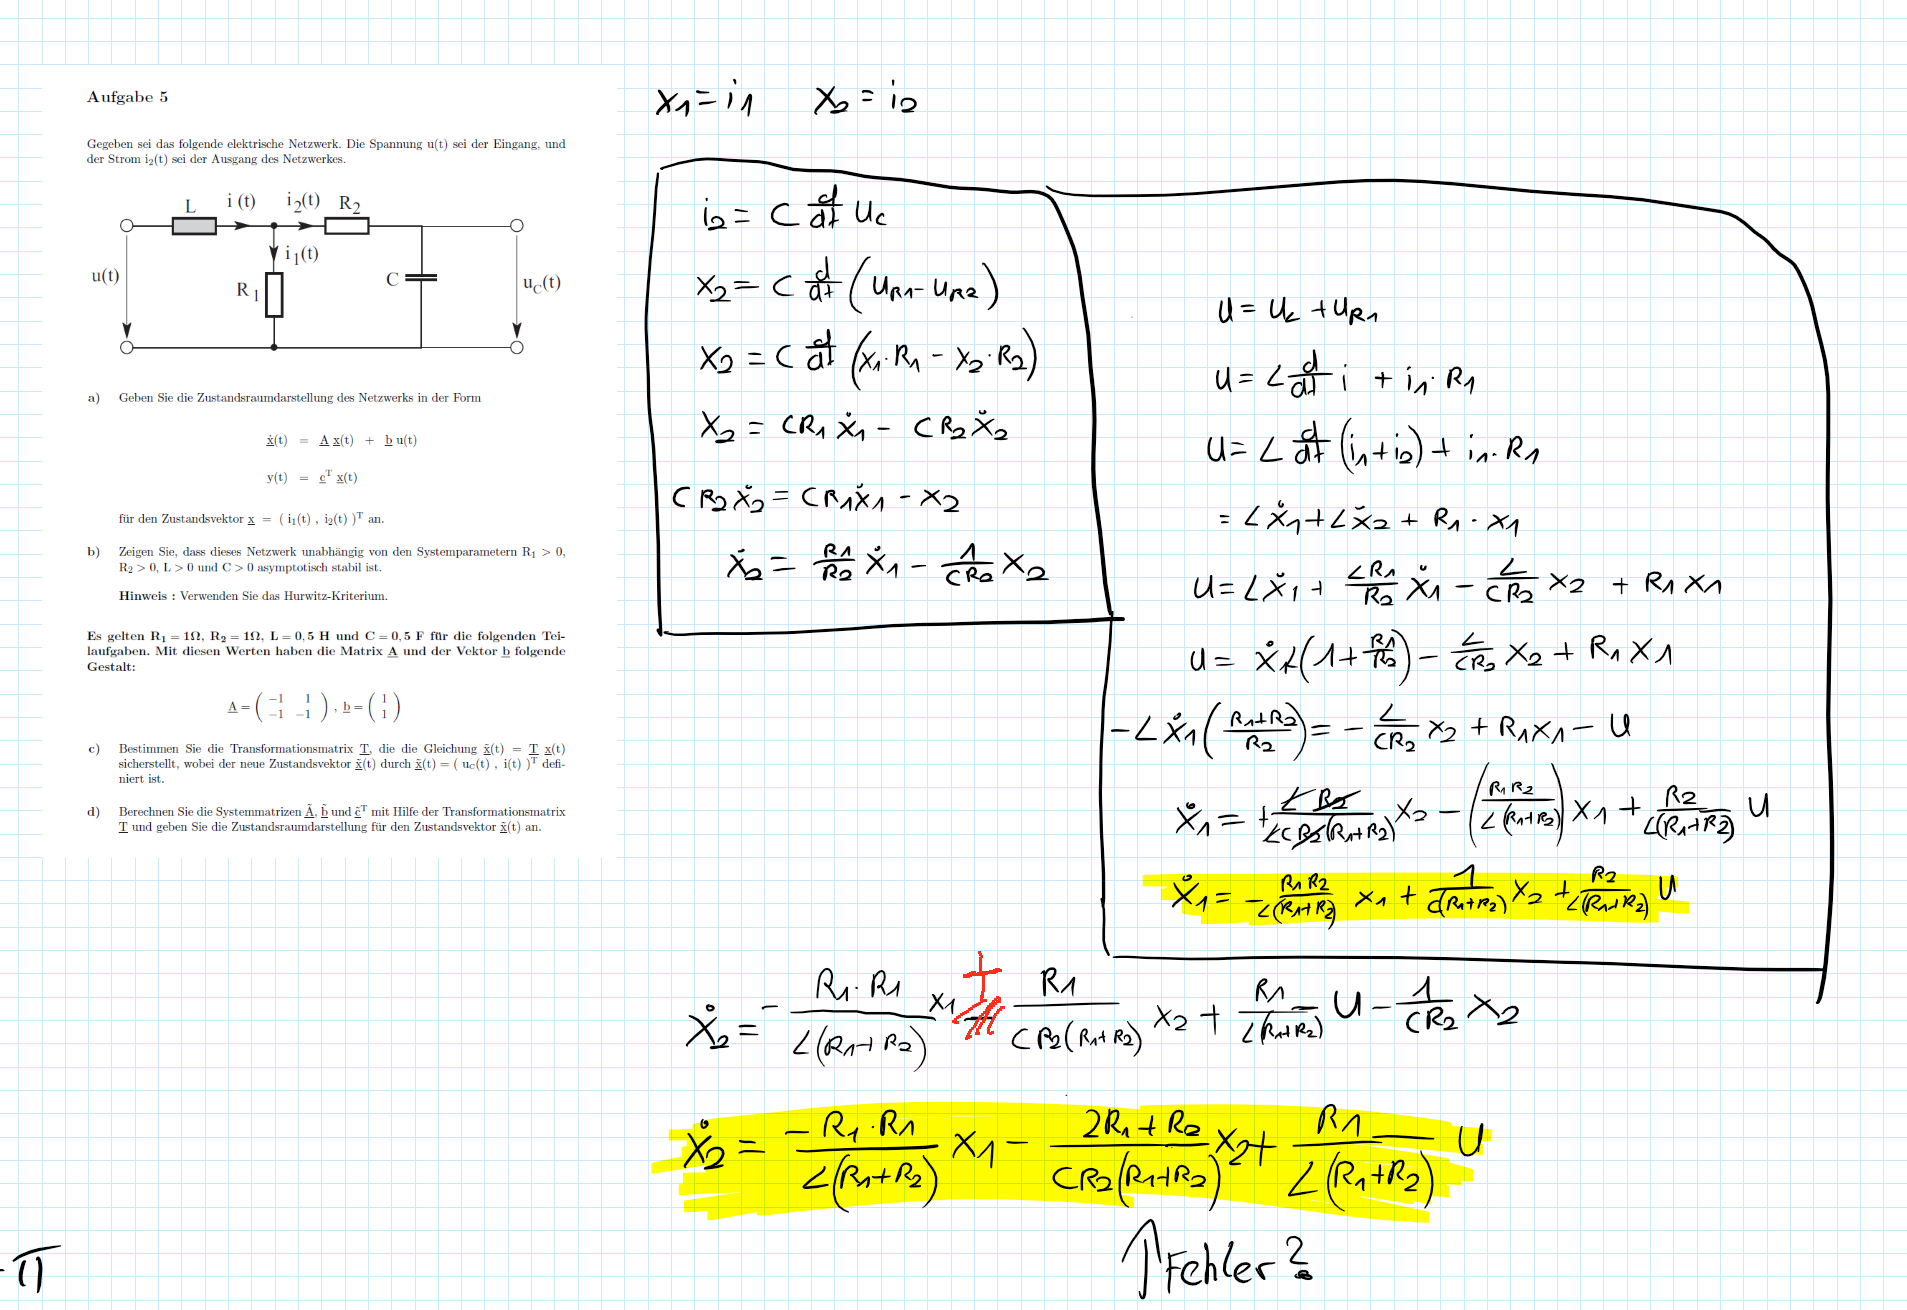 Aufgabe 5
Gegeben sei das folgende elektrische Netzwerk. Die Spannung u(t) sei der Eingang, und
der Strom i₂(t) sei der Ausgang des Netzwerkes.
L i (t) i₂(t) R₂
i₁(t)
u(t) R₁ C u_C(t)
a) Geben Sie die Zustandsraumdarstellung des Netzwerks in der Form
ẋ(t) = A x(t) + b u(t)
y(t) = cᵀ x(t)
für den Zustandsvektor x = ( i₁(t) , i₂(t) )ᵀ an.
b) Zeigen Sie, dass dieses Netzwerk unabhängig von den Systemparametern R₁ > 0,
R₂ > 0, L > 0 und C > 0 asymptotisch stabil ist.
Hinweis : Verwenden Sie das Hurwitz-Kriterium.
Es gelten R₁ = 1Ω, R₂ = 1Ω, L = 0,5 H und C = 0,5 F für die folgenden Tei-
laufgaben. Mit diesen Werten haben die Matrix A und der Vektor b folgende
Gestalt:
A = ( −1 1 ; −1 −1 ) , b = ( 1 ; 1 )
c) Bestimmen Sie die Transformationsmatrix T, die die Gleichung x̃(t) = T x(t)
sicherstellt, wobei der neue Zustandsvektor x̃(t) durch x̃(t) = ( u_C(t) , i(t) )ᵀ defi-
niert ist.
d) Berechnen Sie die Systemmatrizen Ã, b̃ und c̃ᵀ mit Hilfe der Transformationsmatrix
T und geben Sie die Zustandsraumdarstellung für den Zustandsvektor x̃(t) an.
x₁ = i₁ x₂ = i₂
i₂ = C d/dt u_C
x₂ = C d/dt (u_R1 − u_R2)
x₂ = C d/dt (x₁·R₁ − x₂·R₂)
x₂ = CR₁ẋ₁ − CR₂ẋ₂
CR₂ẋ₂ = CR₁ẋ₁ − x₂
ẋ₂ = R₁/R₂ ẋ₁ − 1/(CR₂) x₂
u = u_L + u_R1
u = L d/dt i + i₁·R₁
u = L d/dt (i₁+i₂) + i₁·R₁
= Lẋ₁ + Lẋ₂ + R₁·x₁
u = Lẋ₁ + LR₁/R₂ ẋ₁ − L/(CR₂) x₂ + R₁x₁
u = ẋL(1 + R₁/R₂) − L/(CR₂) x₂ + R₁x₁
−Lẋ₁((R₁+R₂)/R₂) = − L/(CR₂) x₂ + R₁x₁ − u
ẋ₁ = + LR₂/(LCR₂(R₁+R₂)) x₂ − (R₁R₂/(L(R₁+R₂))) x₁ + R₂/(L(R₁+R₂)) u
ẋ₁ = − R₁R₂/(L(R₁+R₂)) x₁ + 1/(C(R₁+R₂)) x₂ + R₂/(L(R₁+R₂)) u
ẋ₂ = − R₁·R₁/(L(R₁+R₂)) x₁ + R₁/(CR₂(R₁+R₂)) x₂ + R₁/(L(R₁+R₂)) u − 1/(CR₂) x₂
ẋ₂ = −R₁·R₁/(L(R₁+R₂)) x₁ − (2R₁+R₂)/(CR₂(R₁+R₂)) x₂ + R₁/(L(R₁+R₂)) u
↑ Fehler?
-π